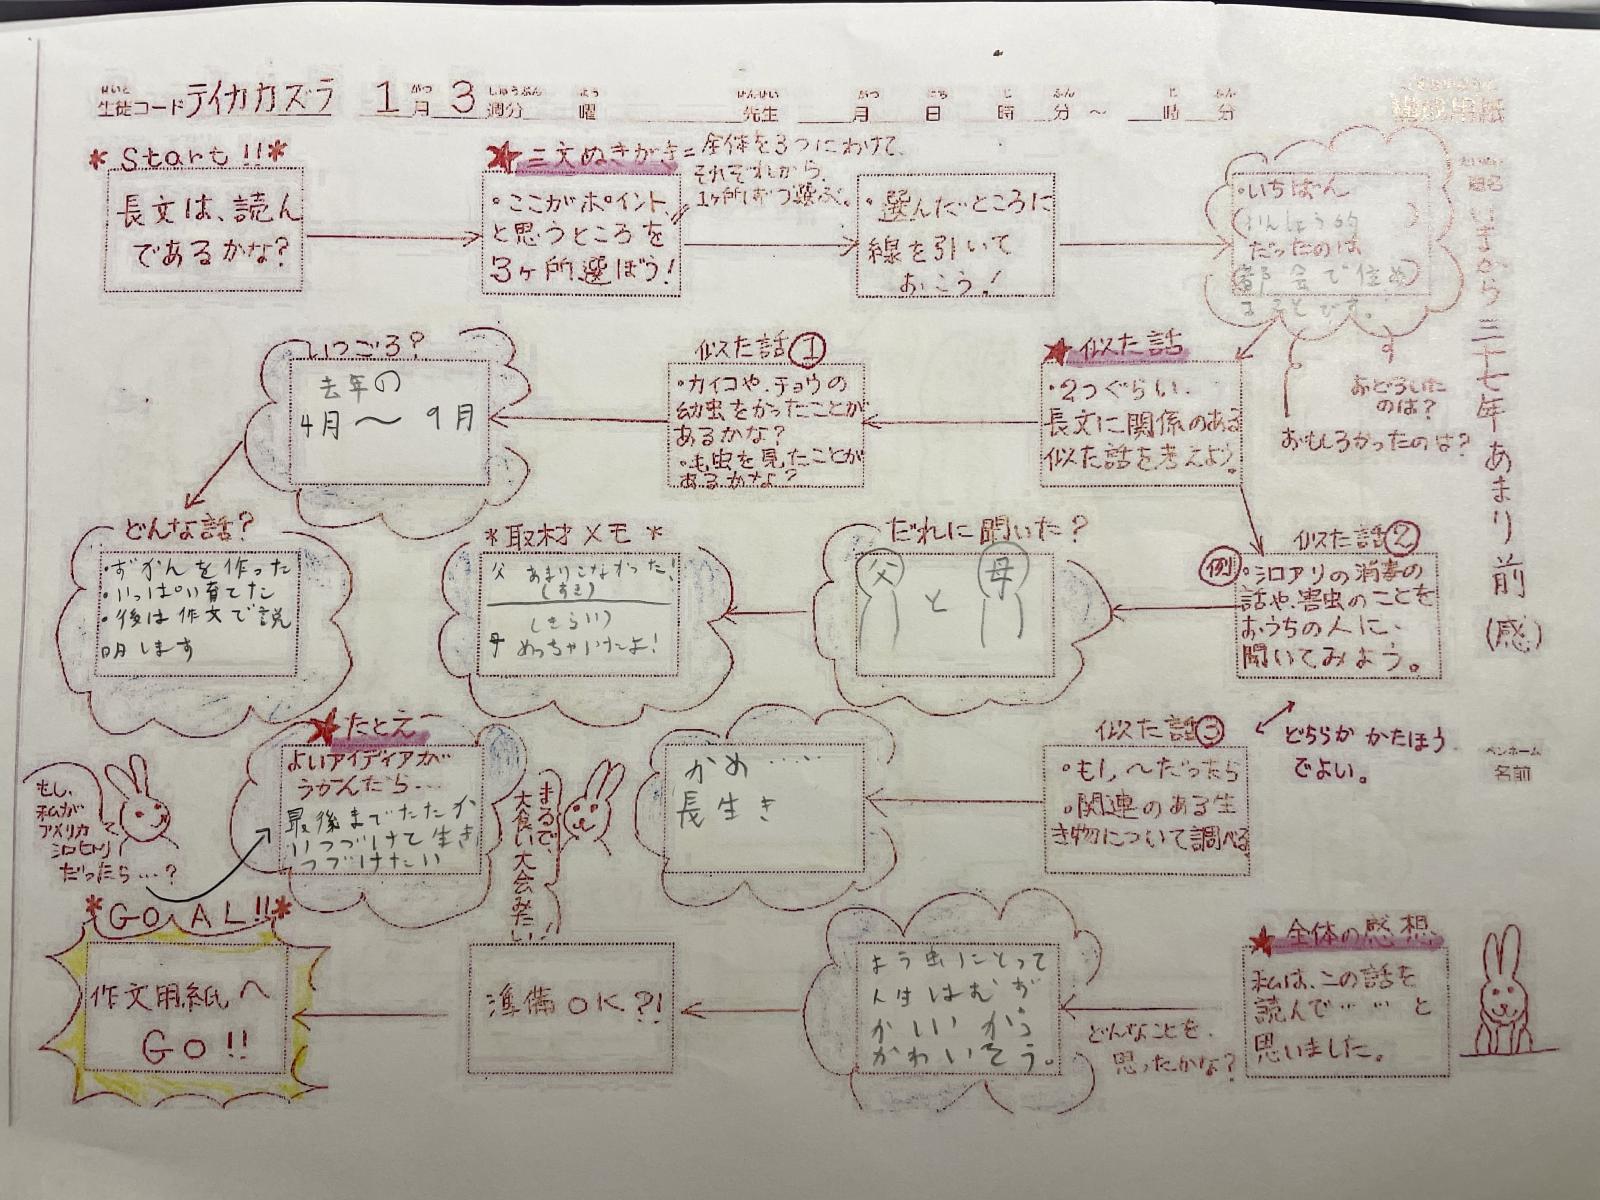 生徒コード テイカカズラ 1月3週分 曜 先生 月 日 時 分 ～ 時 分
せいと がつ しゅうぶん よう せんせい がつ にち じ ふん じ ふん
* Start!! *
長文は、読ん
であるかな?
★三文ぬきがき=全体を3つにわけて、
それぞれから、
1ヶ所ずつ選ぶ。
・ここがポイント、
と思うところを
3ヶ所選ぼう!
・選んだところに
線を引いて
おこう!
・いちばん
だったのは
都会で住め
ることです。
題名
いまから三十七年あまり前(感)
おどろいた
のは?
おもしろかったのは?
★似た話
・2つぐらい.
長文に関係のある
似た話を考えよう。
似た話①
・カイコや、チョウの
幼虫をかったことが
あるかな?
・毛虫を見たことが
あるかな?
いつごろ?
去年の
4月～9月
どんな話?
・ずかんを作った
・いっぱい育てた
・後は作文で説
明します
似た話②
例
・シロアリの消毒の
話や、害虫のことを
おうちの人に、
聞いてみよう。
だれに聞いた?
父と母
*取材メモ*
父 あまりこなかった!
(すき)
(きらい)
母 めっちゃいたよ!
どちらか かたほう
でよい。
ペンネーム
名前
似た話③
・もし〜だったら
・関連のある生
き物について調べる
かめ・・・・
長生き
まるで、
大食い大会みたい!
★たとえ
よいアイディアが
うかんだら…
最後までたたか
いつづけて生き
つづけたい
もし、
私が
アメリカ
シロヒトリ
だったら…?
★全体の感想
私は、この話を
読んで……と
思いました。
どんなことを、
思ったかな?
よう虫にとって
人生はむず
かわいそう。
準備OK?!
* GOAL!! *
作文用紙へ
GO!!